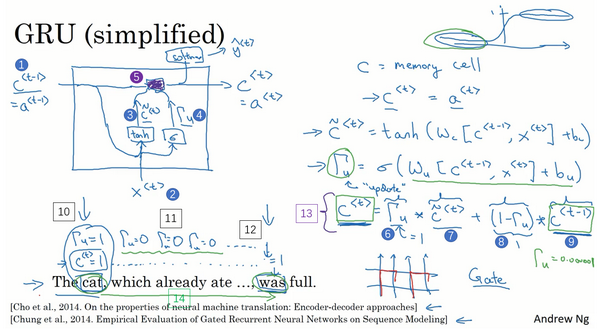 GRU (simplified)
softmax
ŷ<t>
1
5
c<t-1>
=a<t-1>
c<t>
=a<t>
3
c̃<t>
Γu
4
tanh
σ
x<t>
2
C = memory cell
→ c<t> = a<t>
→ c̃<t> = tanh(Wc[c<t-1>, x<t>] + bc)
→ Γu = σ(Wu[c<t-1>, x<t>] + bu)
"update"
13
c<t> = Γu * c̃<t> + (1-Γu) * c<t-1>
6
7
8
9
=1
Γu = 0.000001
Gate
10
11
12
Γu=1
Γu=0 Γu=0 Γu=0 ....
c<t>=1
=1
→ The cat, which already ate ..., was full.
14
[Cho et al., 2014. On the properties of neural machine translation: Encoder-decoder approaches] ←
[Chung et al., 2014. Empirical Evaluation of Gated Recurrent Neural Networks on Sequence Modeling] ←
Andrew Ng